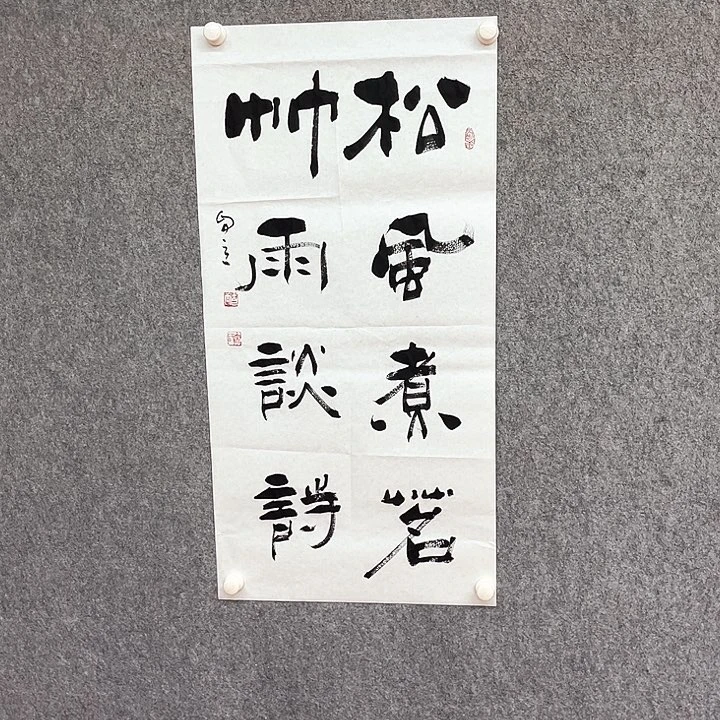 松風煮茗
竹雨談詩